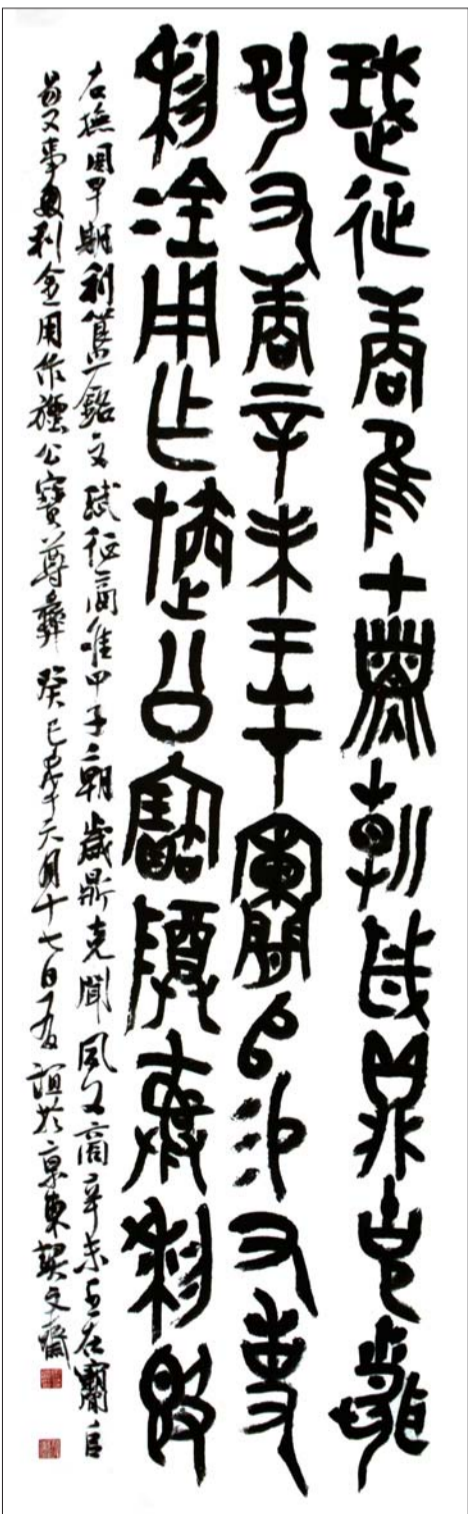 珷征商隹甲子朝歲鼎克聞
夙又商辛未王才闌𠂤易又事
利金用乍旜公寶尊彝利簋
右撫周早期利簋之銘文珷征商唯甲子朝歲鼎克聞夙又商辛未王在闌𠂤
易又事利金用作旜公寶尊彝癸巳年六月十七日誼於京東契文齋